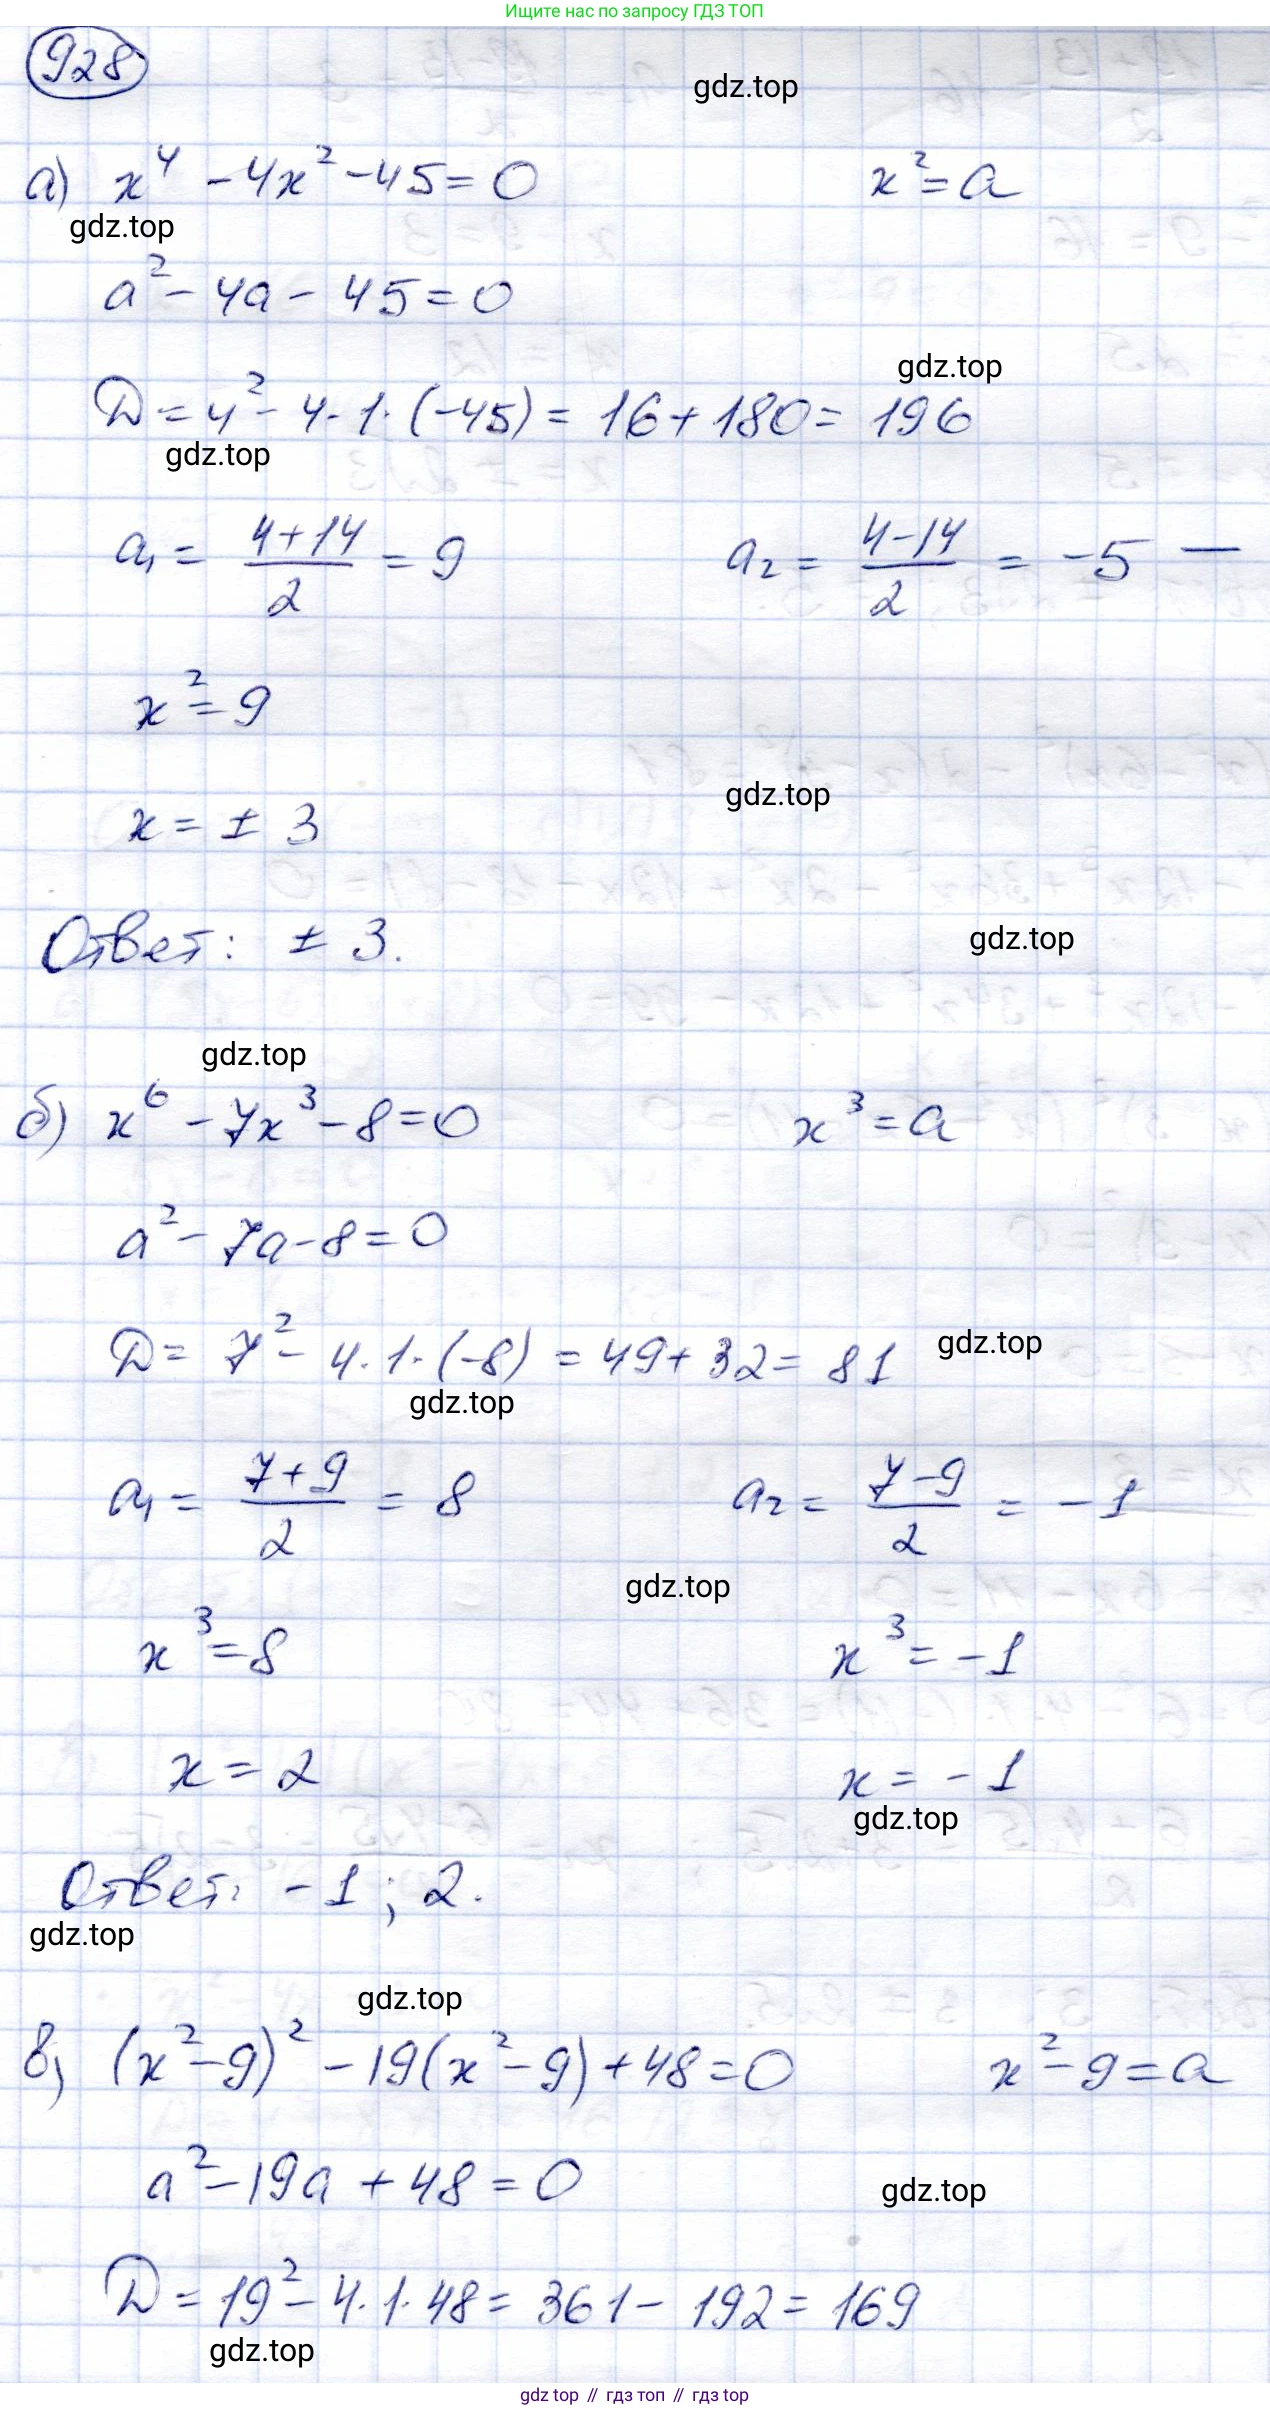 Ищите нас по запросу ГДЗ ТОП
928
gdz.top
а) x⁴ - 4x² - 45 = 0    x² = a
gdz.top
a² - 4a - 45 = 0
gdz.top
D = 4² - 4·1·(-45) = 16 + 180 = 196
gdz.top
a₁ = (4+14)/2 = 9    a₂ = (4-14)/2 = -5 —
x² = 9
gdz.top
x = ± 3
Ответ: ± 3.
gdz.top
gdz.top
б) x⁶ - 7x³ - 8 = 0    x³ = a
a² - 7a - 8 = 0
gdz.top
D = 7² - 4·1·(-8) = 49 + 32 = 81
gdz.top
a₁ = (7+9)/2 = 8    a₂ = (7-9)/2 = -1
gdz.top
x³ = 8    x³ = -1
x = 2    x = -1
gdz.top
Ответ: -1; 2.
gdz.top
gdz.top
в) (x² - 9)² - 19(x² - 9) + 48 = 0    x² - 9 = a
a² - 19a + 48 = 0
gdz.top
D = 19² - 4·1·48 = 361 - 192 = 169
gdz.top
gdz top // гдз топ // гдз top